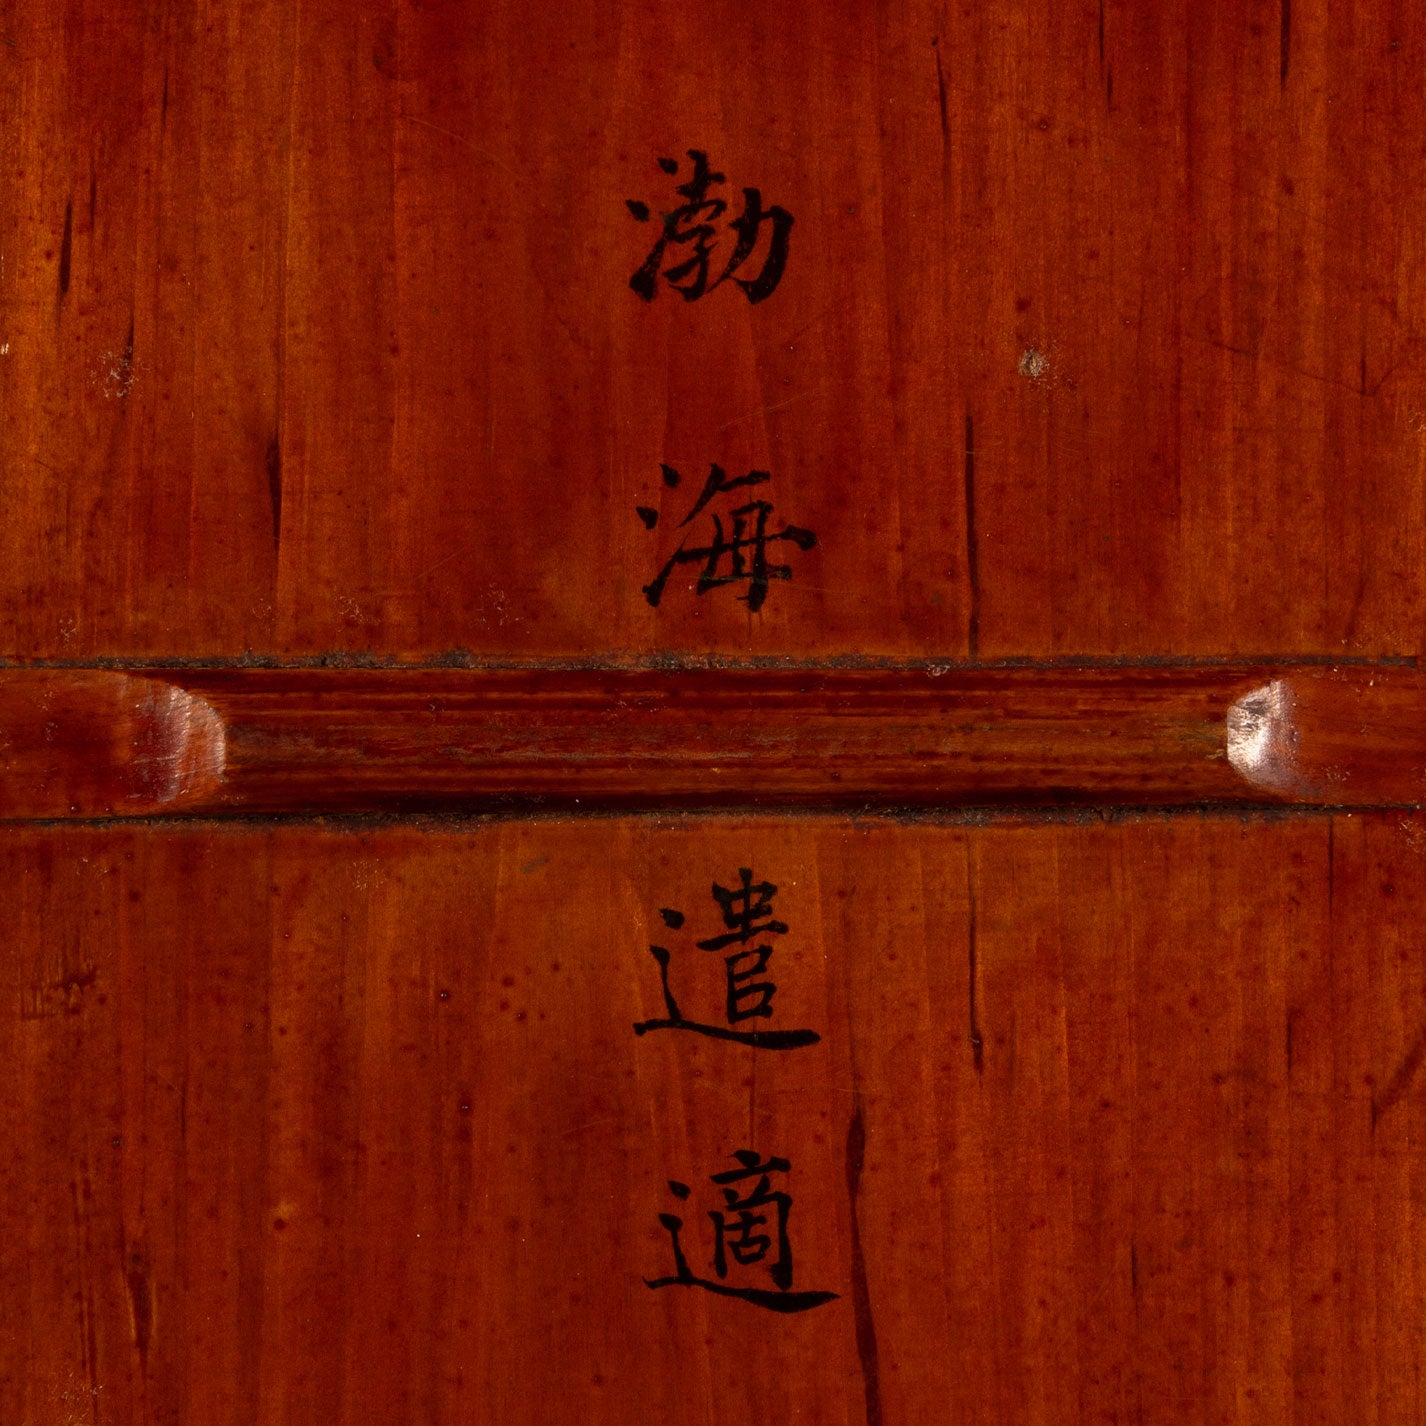 渤海遣適